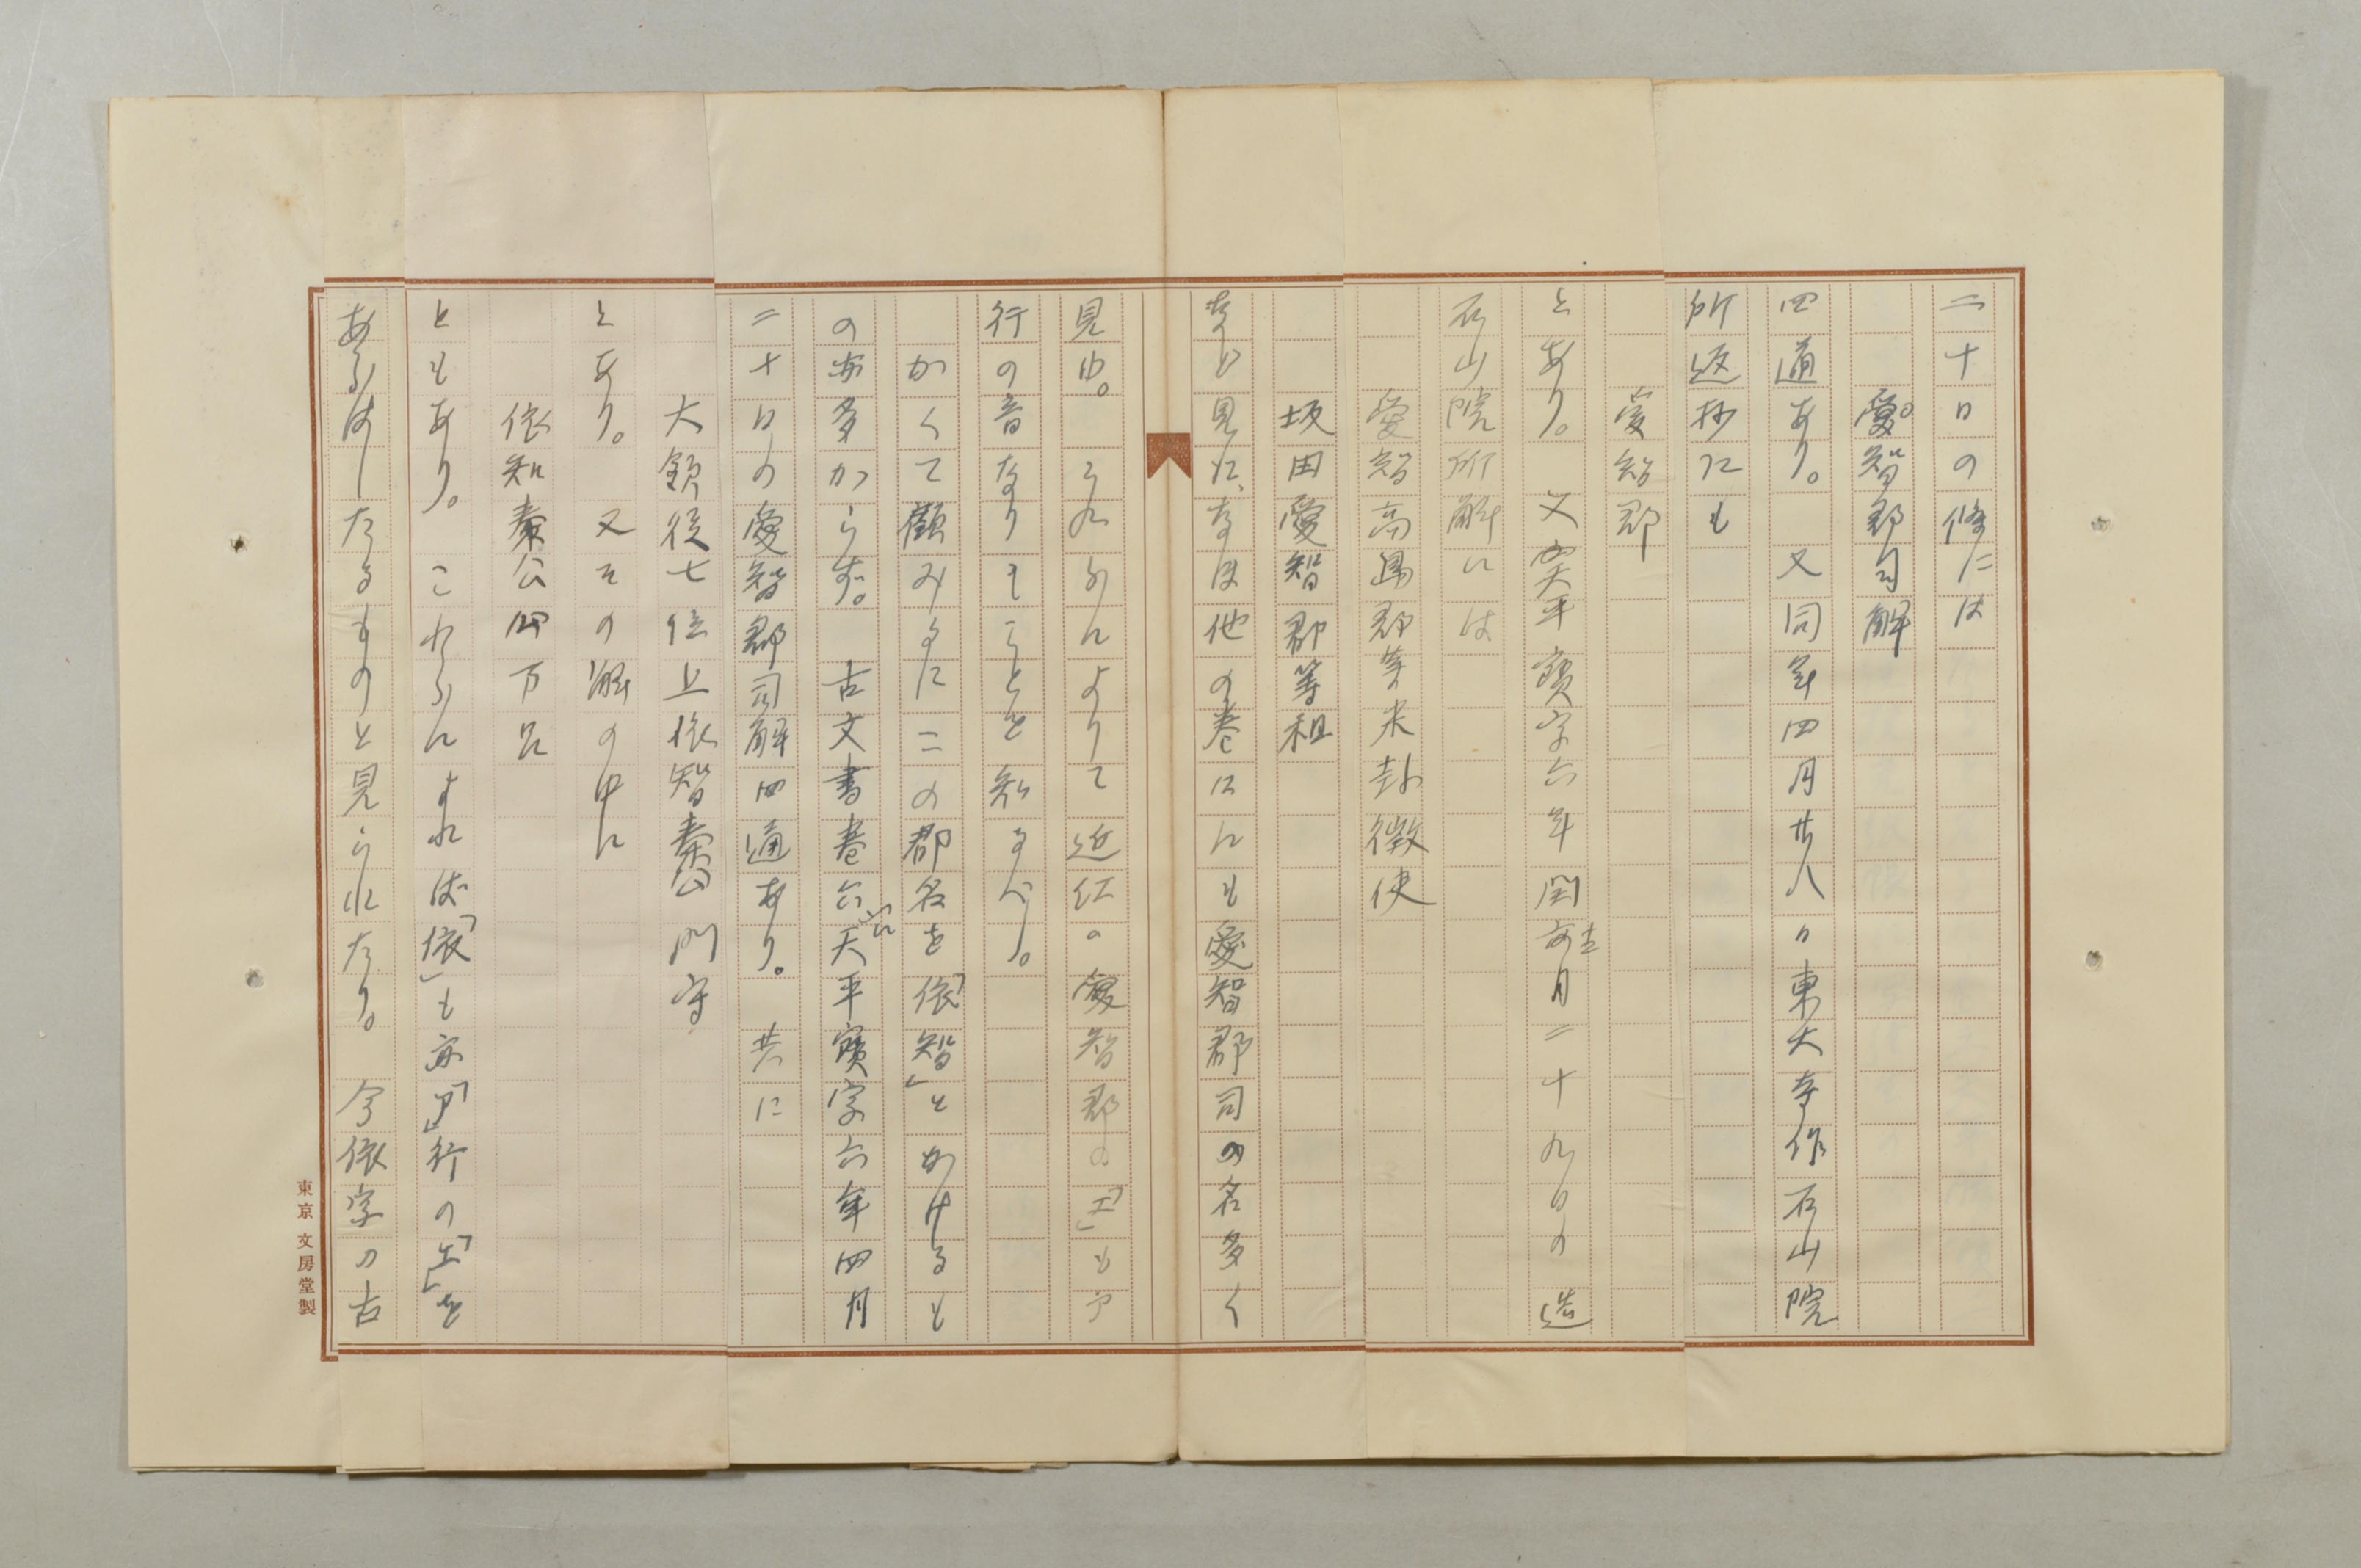 二十日の條には
愛智郡司解
四通あり。又同年四月廿八日東大寺作石山院
所返抄にも
愛智郡
とあり。又天平寶字六年閏十二月二十九日の造
石山院所解には
愛智高嶋郡等米勘徴使
坂田愛智郡等租
など見え、なほ他の巻にも愛智郡司の名多く
見ゆ。これらによりて近江の愛智郡の「エ」もア
行の音なりしことを知るべし。
かくて顧みるにこの郡名を「依智」とかけるも
の亦多からず。古文書巻六に天平寶字六年四月
二十日の愛智郡司解四通あり。共に
大領従七位上依智秦公門守
とあり。又その解の中に
依知秦公田万呂
ともあり。これらによれば「依」も亦「ア」行の「エ」を
あらはしたるものと見られたり。今依字の古
東京 文房堂製